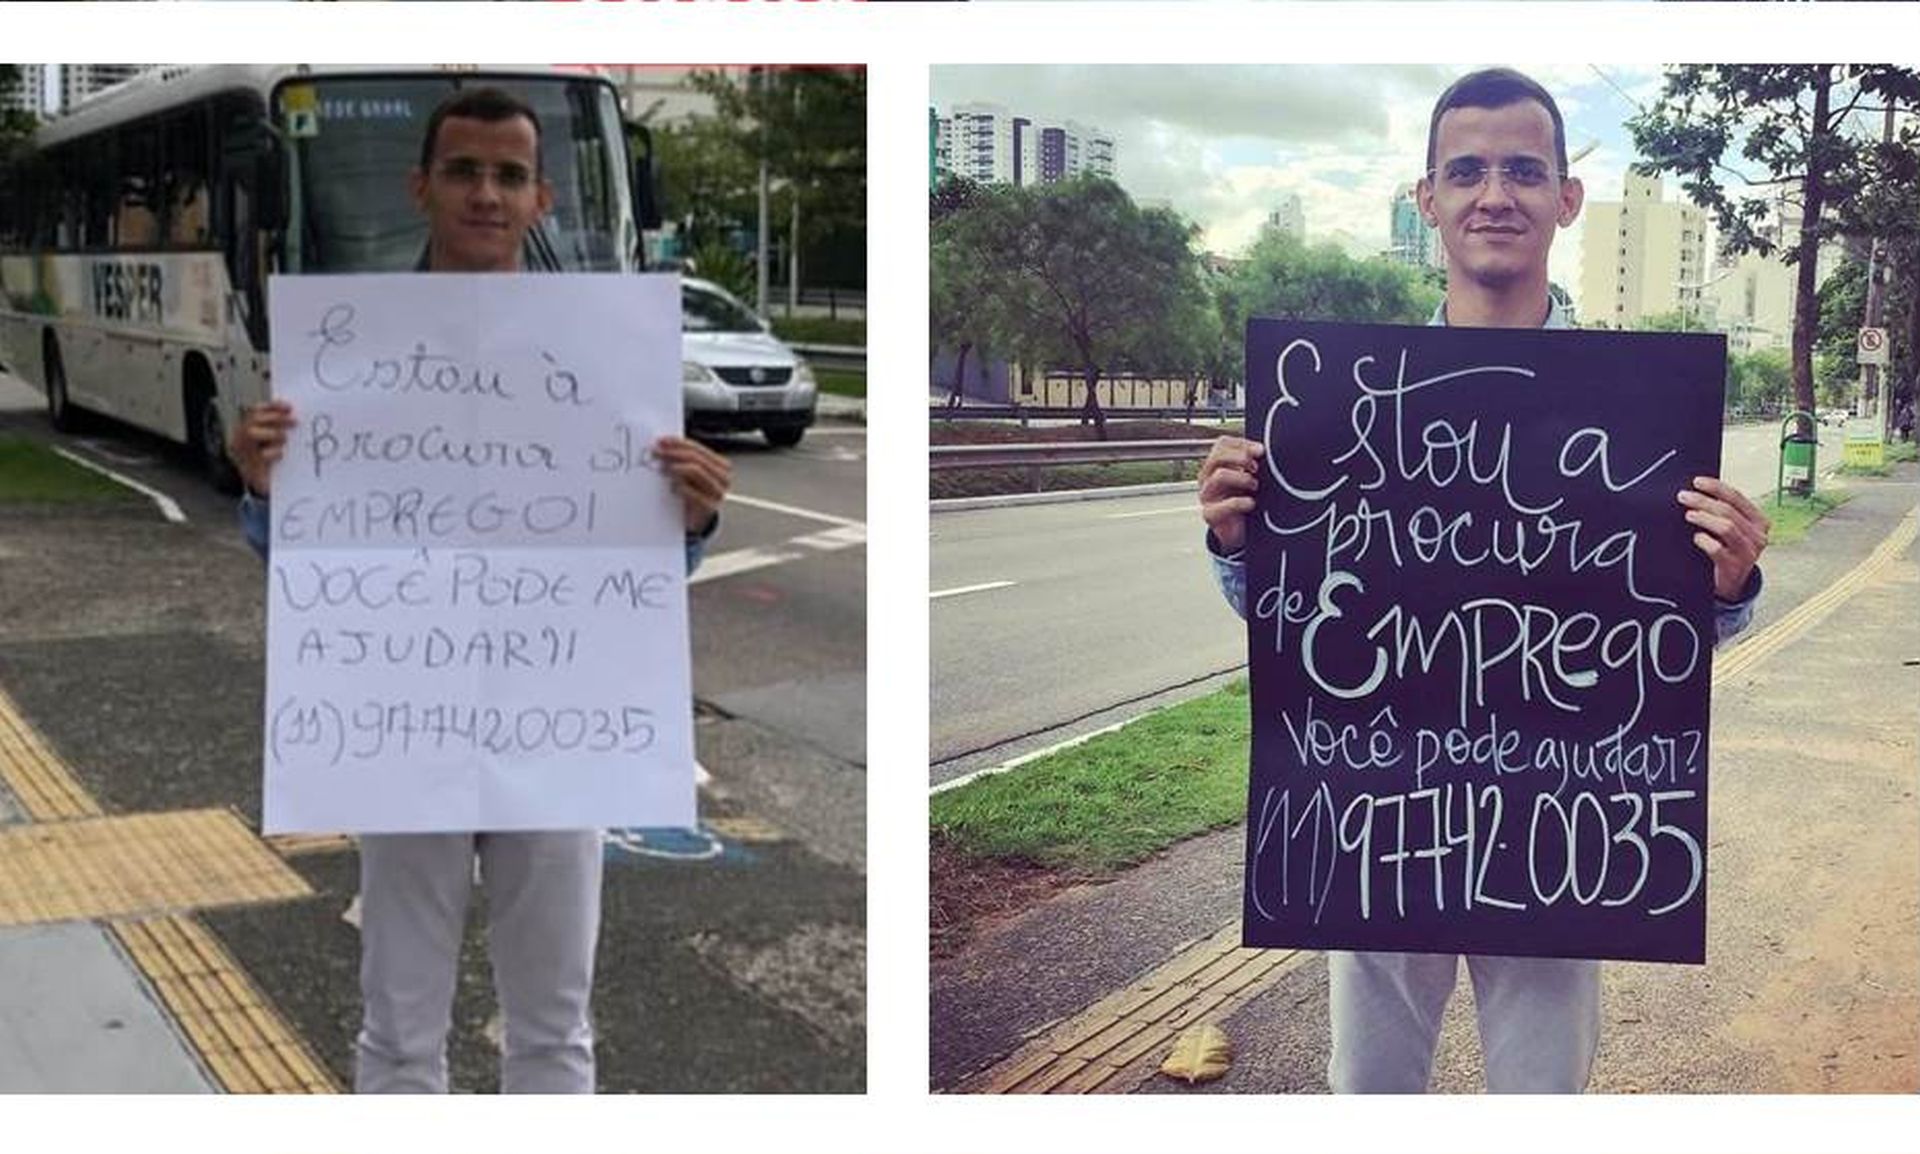 VESPER
Estou à
procura de
EMPREGO!
VOCÊ PODE ME
AJUDAR?!
(11)977420035
Estou a
procura
de Emprego
Você pode ajudar?
(11)97742-0035